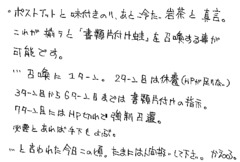 ・ポストアットと味付きのり、あと冷た、岩茶と真言。
これが揃うと「書類片付け蛙」を召喚する事が
可能です。
…召喚に1ターン。2ターン目は休養(HPが足りない)
3ターン目から6ターン目までは書類片付の指示。
7ターン目にはHP切れで強制召還。
必要とあれば手下もよぶ。
…と言われた今日この頃。たまには人間扱いして下さい。